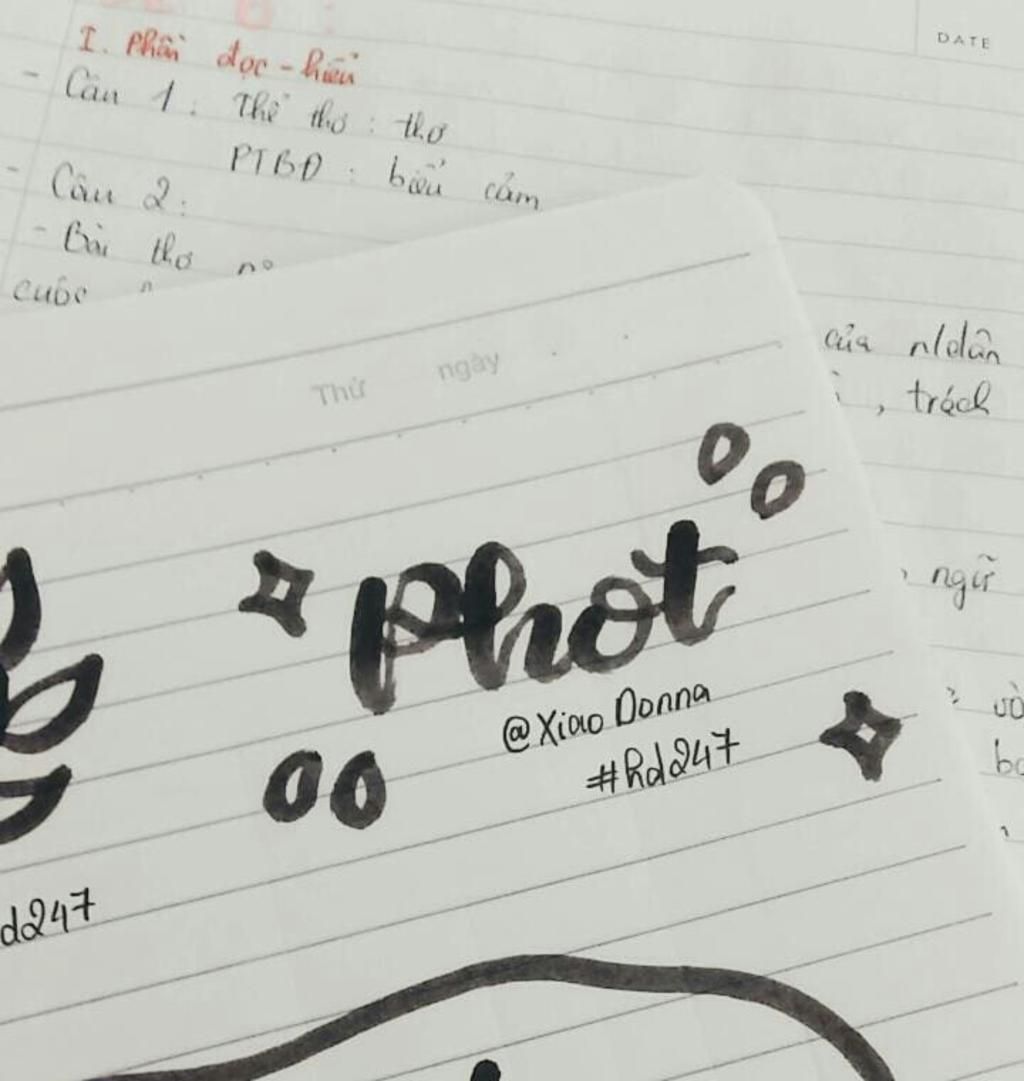 I. Phần đọc - hiểu
DATE
- Câu 1: Thể thơ: thơ
PTBĐ: biểu cảm
- Câu 2:
- Bài thơ
cuộc
của n/dân
, trách
Thứ ngày
, ngữ
Phot
@Xiao Donna
#hd247
và
d247